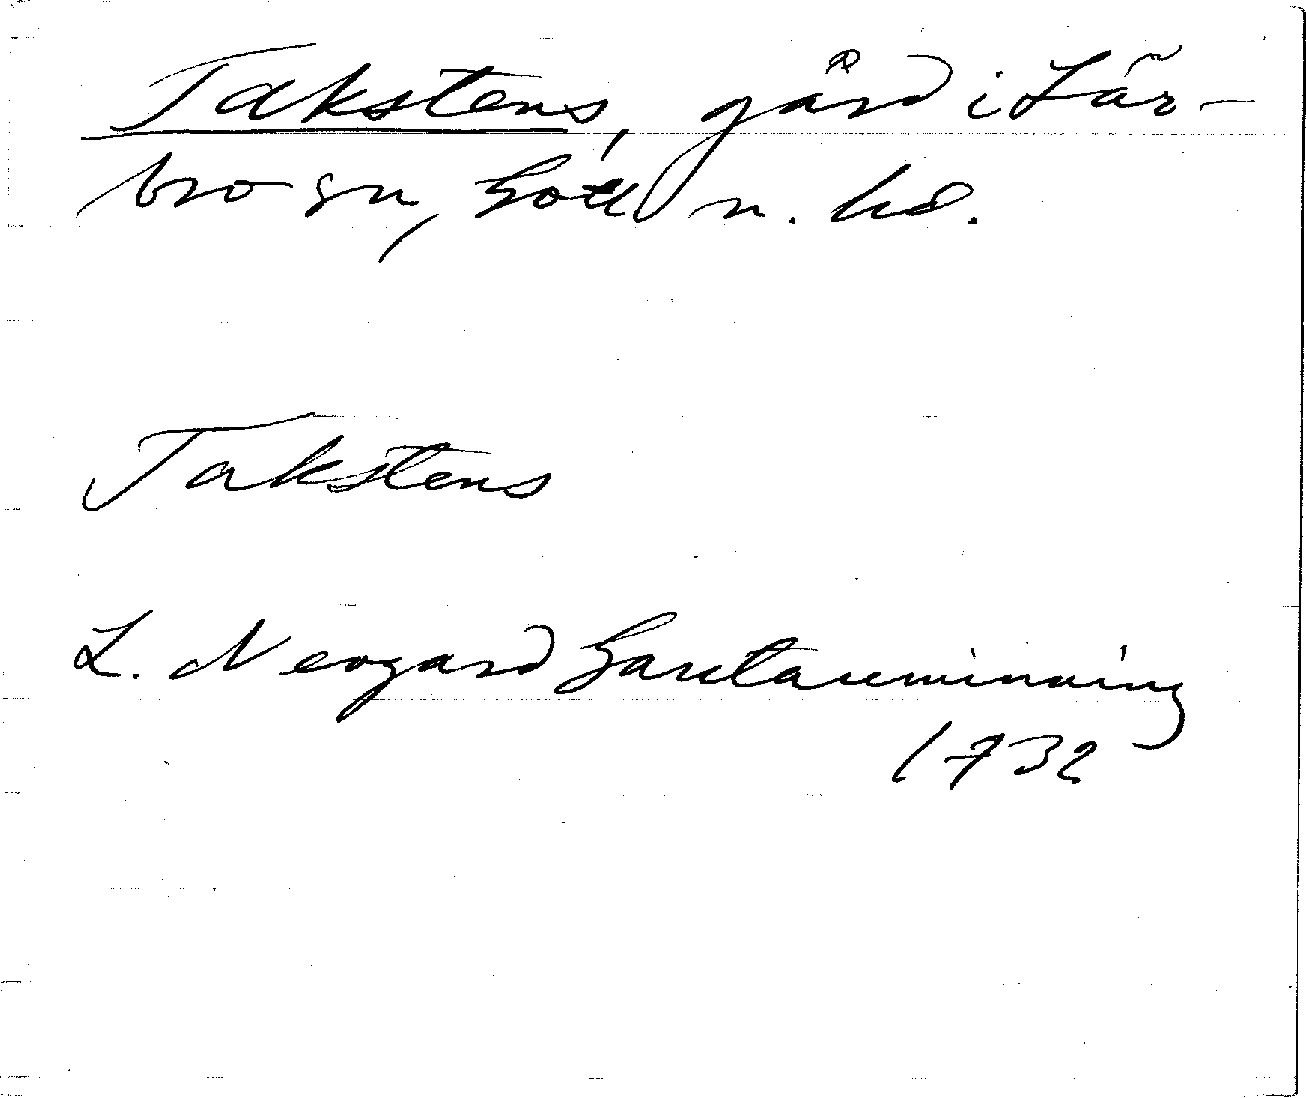 Takstens, gård i Lär-
bro sn, Gotl n. hd.
Takstens
L. Neogard Gautauminning
1732